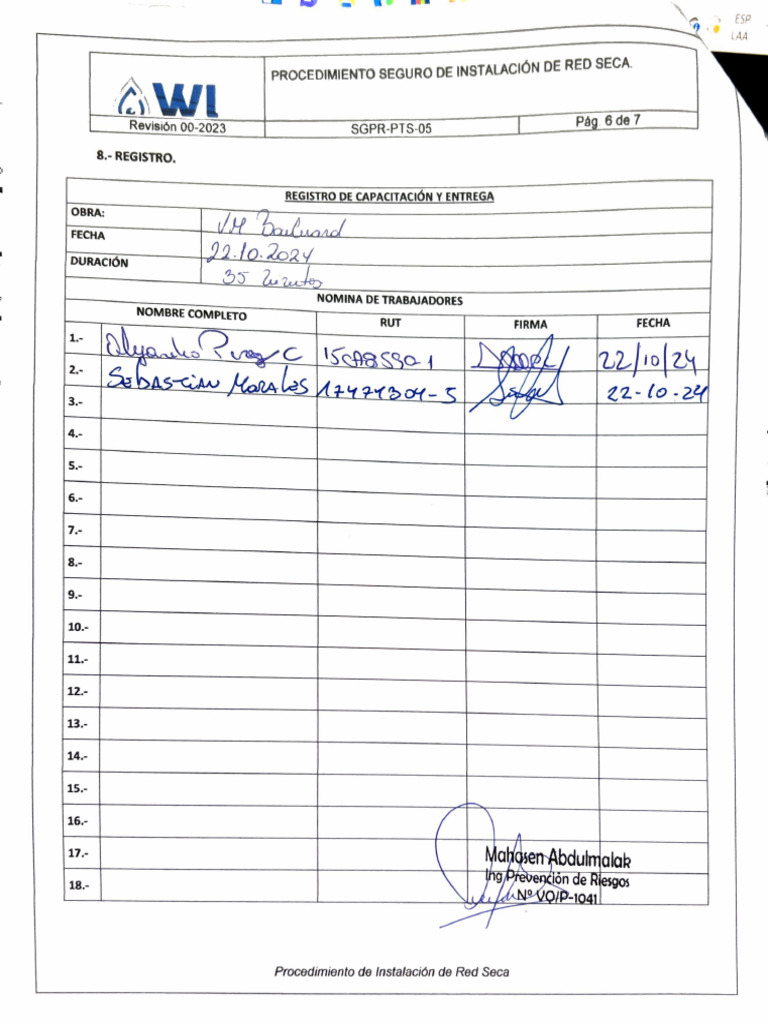 ESP
LAA
WI
Revisión 00-2023
PROCEDIMIENTO SEGURO DE INSTALACIÓN DE RED SECA.
SGPR-PTS-05
Pág. 6 de 7
8.- REGISTRO.
REGISTRO DE CAPACITACIÓN Y ENTREGA
OBRA: VM
FECHA 22.10.2024
DURACIÓN 35 minutos
NOMINA DE TRABAJADORES
NOMBRE COMPLETO RUT FIRMA FECHA
1.- Alejandro C 22/10/24
2.- SEBASTIÁN MORALES 17474304-5 22-10-24
3.-
4.-
5.-
6.-
7.-
8.-
9.-
10.-
11.-
12.-
13.-
14.-
15.-
16.-
17.-
18.-
Mahasen Abdulmalak
Ing Prevención de Riesgos
Nº VO/P-1041
Procedimiento de Instalación de Red Seca